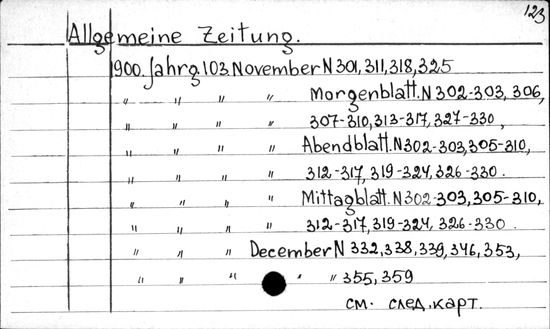 123
Allgemeine Zeitung.
1900. Jahrg. 103 November N 301, 311, 318, 325
〃 〃 〃 〃 Morgenblatt. N 302-303, 306,
〃 〃 〃 〃 307-310, 313-317, 327-330,
〃 〃 〃 〃 Abendblatt. N 302-303, 305-310,
〃 〃 〃 〃 312-317, 319-324, 326-330.
〃 〃 〃 〃 Mittagblatt. N 302-303, 305-310,
〃 〃 〃 〃 312-317, 319-324, 326-330.
〃 〃 〃 December N 332, 338, 339, 346, 353,
〃 〃 〃 〃 〃 355, 359
см. след. карт.